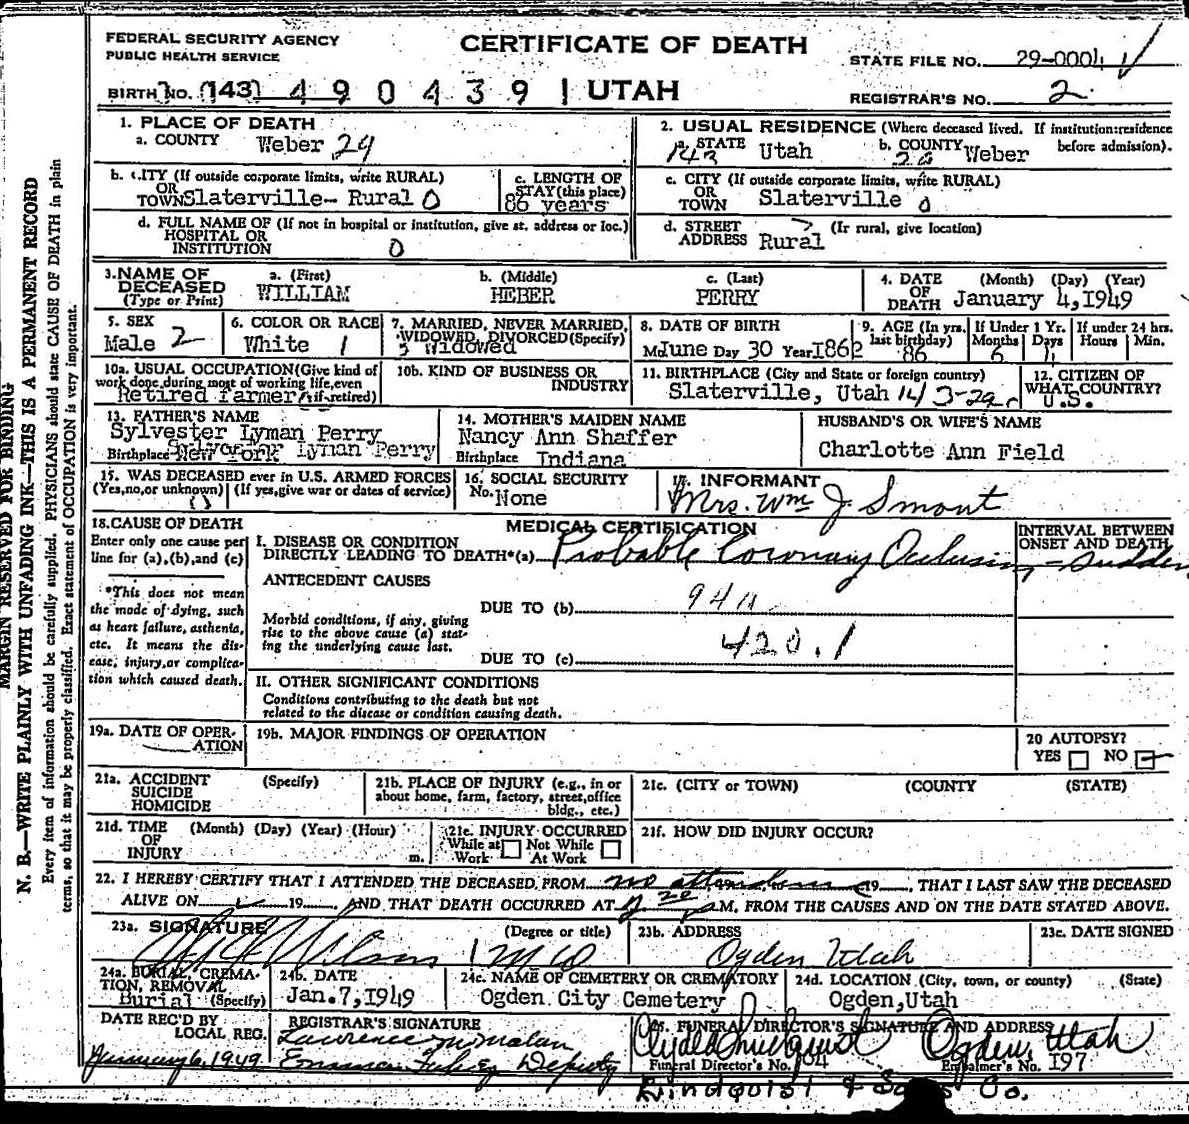 FEDERAL SECURITY AGENCY
PUBLIC HEALTH SERVICE
CERTIFICATE OF DEATH
STATE FILE NO. 29-0004
BIRTH NO. (143) 490439 UTAH
REGISTRAR'S NO. 2
1. PLACE OF DEATH
a. COUNTY Weber 29
2. USUAL RESIDENCE (Where deceased lived. If institution: residence before admission).
a. STATE Utah 143
b. COUNTY Weber
b. CITY (If outside corporate limits, write RURAL)
OR TOWN Slaterville- Rural 0
c. LENGTH OF STAY (this place)
86 years
c. CITY (If outside corporate limits, write RURAL)
OR TOWN Slaterville 0
d. FULL NAME OF (If not in hospital or institution, give st. address or loc.)
HOSPITAL OR INSTITUTION 0
d. STREET (If rural, give location)
ADDRESS Rural
3. NAME OF DECEASED (Type or Print)
a. (First) WILLIAM
b. (Middle) HEBER
c. (Last) PERRY
4. DATE OF DEATH (Month) (Day) (Year)
January 4, 1949
5. SEX
Male 2
6. COLOR OR RACE
White 1
7. MARRIED, NEVER MARRIED, WIDOWED, DIVORCED (Specify)
Widowed
8. DATE OF BIRTH
M June Day 30 Year 1862
9. AGE (In yrs. last birthday) 86
If Under 1 Yr. Months 6 Days
If under 24 hrs. Hours Min.
10a. USUAL OCCUPATION (Give kind of work done during most of working life, even if retired)
Retired farmer
10b. KIND OF BUSINESS OR INDUSTRY
11. BIRTHPLACE (City and State or foreign country)
Slaterville, Utah
12. CITIZEN OF WHAT COUNTRY?
U.S.
13. FATHER'S NAME
Sylvester Lyman Perry
Birthplace New York Lyman Perry
14. MOTHER'S MAIDEN NAME
Nancy Ann Shaffer
Birthplace Indiana
HUSBAND'S OR WIFE'S NAME
Charlotte Ann Field
15. WAS DECEASED ever in U.S. ARMED FORCES
(Yes, no, or unknown) (If yes, give war or dates of service)
16. SOCIAL SECURITY
No. None
17. INFORMANT
Mrs. Wm J. Smout
18. CAUSE OF DEATH
Enter only one cause per line for (a), (b), and (c)
*This does not mean the mode of dying, such as heart failure, asthenia, etc. It means the disease, injury, or complication which caused death.
MEDICAL CERTIFICATION
INTERVAL BETWEEN ONSET AND DEATH
I. DISEASE OR CONDITION
DIRECTLY LEADING TO DEATH*(a) Probable Coronary Occlusion - Sudden
ANTECEDENT CAUSES
DUE TO (b) 94a
Morbid conditions, if any, giving rise to the above cause (a) stating the underlying cause last.
DUE TO (c) 420.1
II. OTHER SIGNIFICANT CONDITIONS
Conditions contributing to the death but not related to the disease or condition causing death.
19a. DATE OF OPERATION
19b. MAJOR FINDINGS OF OPERATION
20 AUTOPSY?
YES NO
21a. ACCIDENT (Specify)
SUICIDE
HOMICIDE
21b. PLACE OF INJURY (e.g., in or about home, farm, factory, street, office bldg., etc.)
21c. (CITY or TOWN) (COUNTY) (STATE)
21d. TIME (Month) (Day) (Year) (Hour)
OF INJURY m.
21e. INJURY OCCURRED
While at Work Not While At Work
21f. HOW DID INJURY OCCUR?
22. I HEREBY CERTIFY THAT I ATTENDED THE DECEASED FROM no attendance 19, THAT I LAST SAW THE DECEASED
ALIVE ON 19, AND THAT DEATH OCCURRED AT M. FROM THE CAUSES AND ON THE DATE STATED ABOVE.
23a. SIGNATURE (Degree or title)
Wilson MD
23b. ADDRESS
Ogden Utah
23c. DATE SIGNED
24a. BURIAL, CREMATION, REMOVAL (Specify)
Burial
24b. DATE
Jan. 7, 1949
24c. NAME OF CEMETERY OR CREMATORY
Ogden City Cemetery
24d. LOCATION (City, town, or county) (State)
Ogden, Utah
DATE REC'D BY LOCAL REG.
January 6, 1949
REGISTRAR'S SIGNATURE
Lawrence
Deputy
25. FUNERAL DIRECTOR'S SIGNATURE AND ADDRESS
Clyde Lindquist Ogden, Utah
Funeral Director's No. 104
Embalmer's No. 197
Lindquist & Sons Co.
MARGIN RESERVED FOR BINDING
N. B.—WRITE PLAINLY WITH UNFADING INK—THIS IS A PERMANENT RECORD
Every item of information should be carefully supplied. PHYSICIANS should state CAUSE OF DEATH in plain
terms, so that it may be properly classified. Exact statement of OCCUPATION is very important.